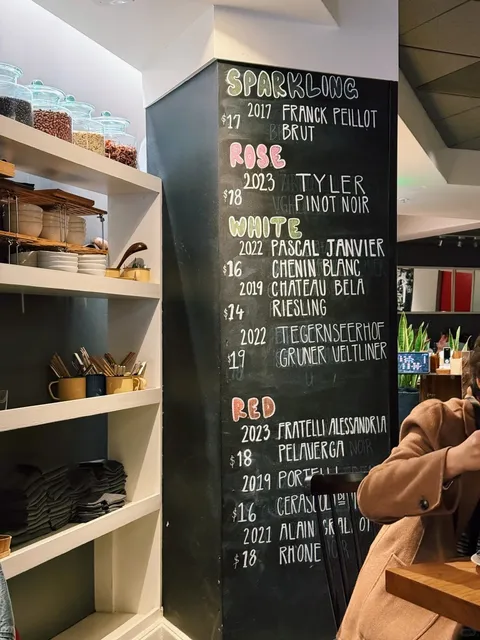 SPARKLING
2017 FRANCK PEILLOT
$17 BRUT
ROSE
2023 TYLER
$18 PINOT NOIR
WHITE
2022 PASCAL JANVIER
$16 CHENIN BLANC
2019 CHATEAU BELA
$14 RIESLING
2022 TEGERNSEERHOF
$19 GRUNER VELTLINER
RED
2023 FRATELLI ALESSANDRIA
$18 PELAVERGA
2019
$16
2021 ALAIN
$18 RHONE